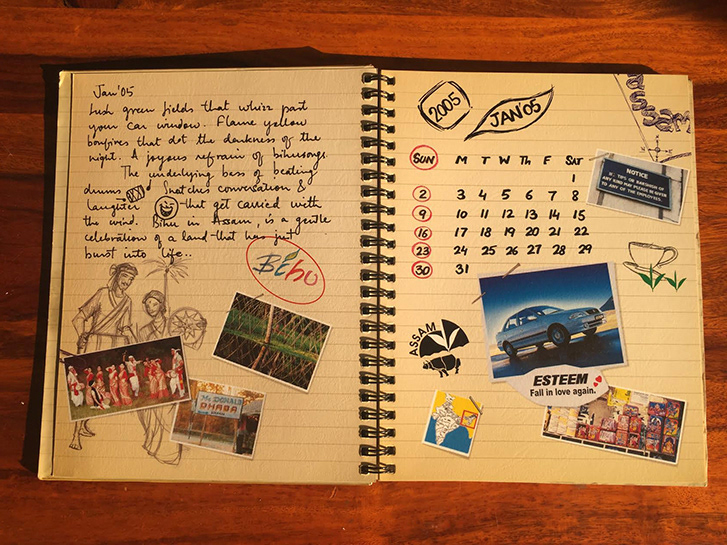 Jan'05
Lush green fields that whizz past
your car window. Flame yellow
bonfires that dot the darkness of the
night. A joyous refrain of bihusongs.
The underlying bass of beating
drums Snatches conversation &
laughter that get carried with
the wind. Bihu in Assam, is a gentle
celebration of a land that has just
burst into life..
BEhu
Mc DONALD
DHABA
2005
JAN'05
ASSAM
SUN M T W Th F SAT
1
2 3 4 5 6 7 8
9 10 11 12 13 14 15
16 17 18 19 20 21 22
23 24 25 26 27 28 29
30 31
NOTICE
TIPS OR BAKSHISH OF
ANY KIND MAY PLEASE BE GIVEN
TO ANY OF THE EMPLOYEES.
ASSAM
ESTEEM
Fall in love again.